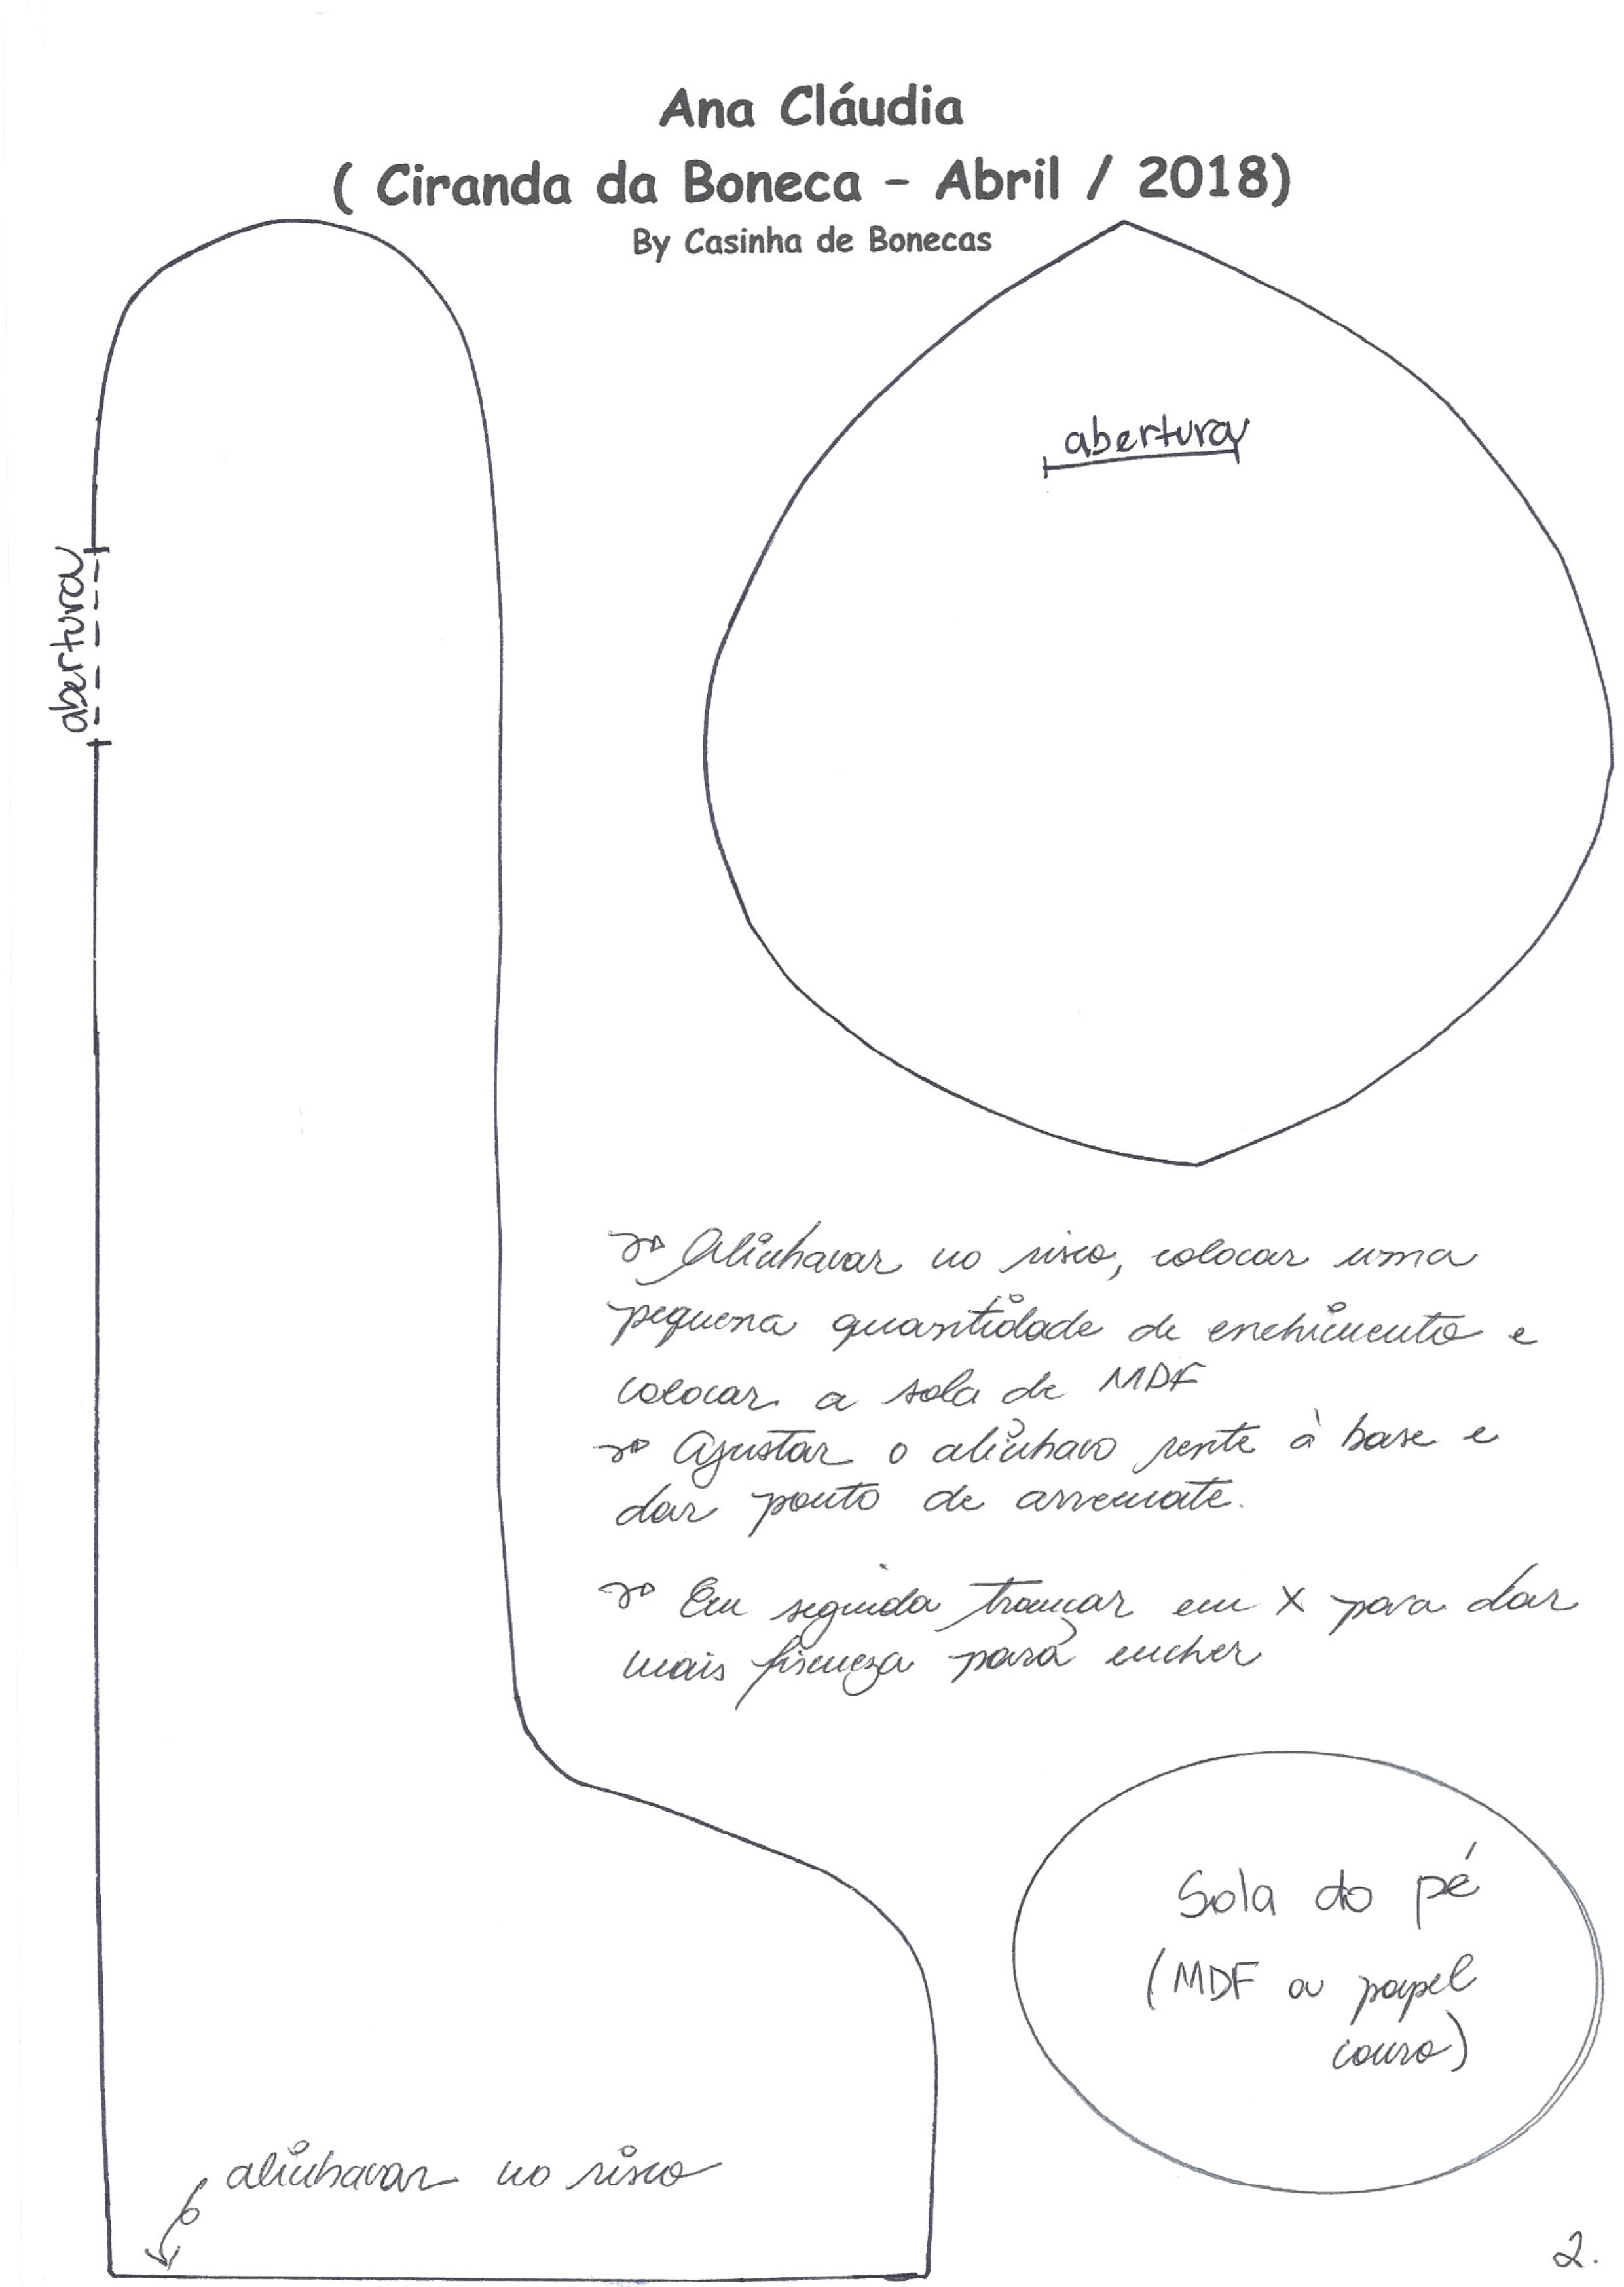 Ana Cláudia
( Ciranda da Boneca – Abril / 2018)
By Casinha de Bonecas
abertura
abertura
Alinhavar no risco, colocar uma
pequena quantidade de enchimento e
colocar a sola de MDF
Ajustar o alinhavo rente à base e
dar ponto de arremate.
Em seguida trançar em X para dar
mais firmeza para encher
Sola do pé
(MDF ou papel
couro)
alinhavar no risco
2.